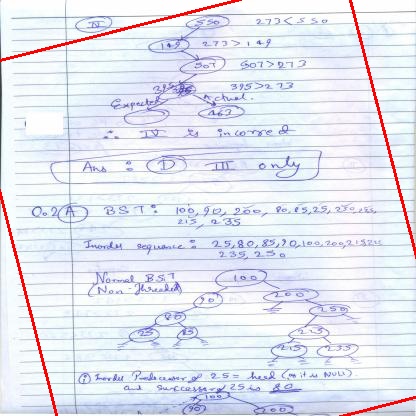 IV 550 273<550
149 273>149
507 507>273
395 395>273
Expected Actual.
463
∴ IV is incorrect
Ans : D III only
Q.2 A BST: 100, 90, 200, 80, 85, 25, 250, 225,
215, 235
Inorder sequence: 25, 80, 85, 90, 100, 200, 215, 225
235, 250
Normal BST
(Non-Threaded)
100
90 200
80 250
25 85 225
215 235
(i) Inorder Predecessor of 25 = head (as it is NULL).
and successor of 25 is 80
100
90 200